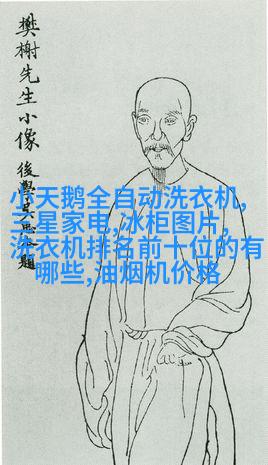 樊榭先生小像
後學 題
小天鹅全自动洗衣机,
三星家电,冰柜图片,
洗衣机排名前十位的有
哪些,油烟机价格